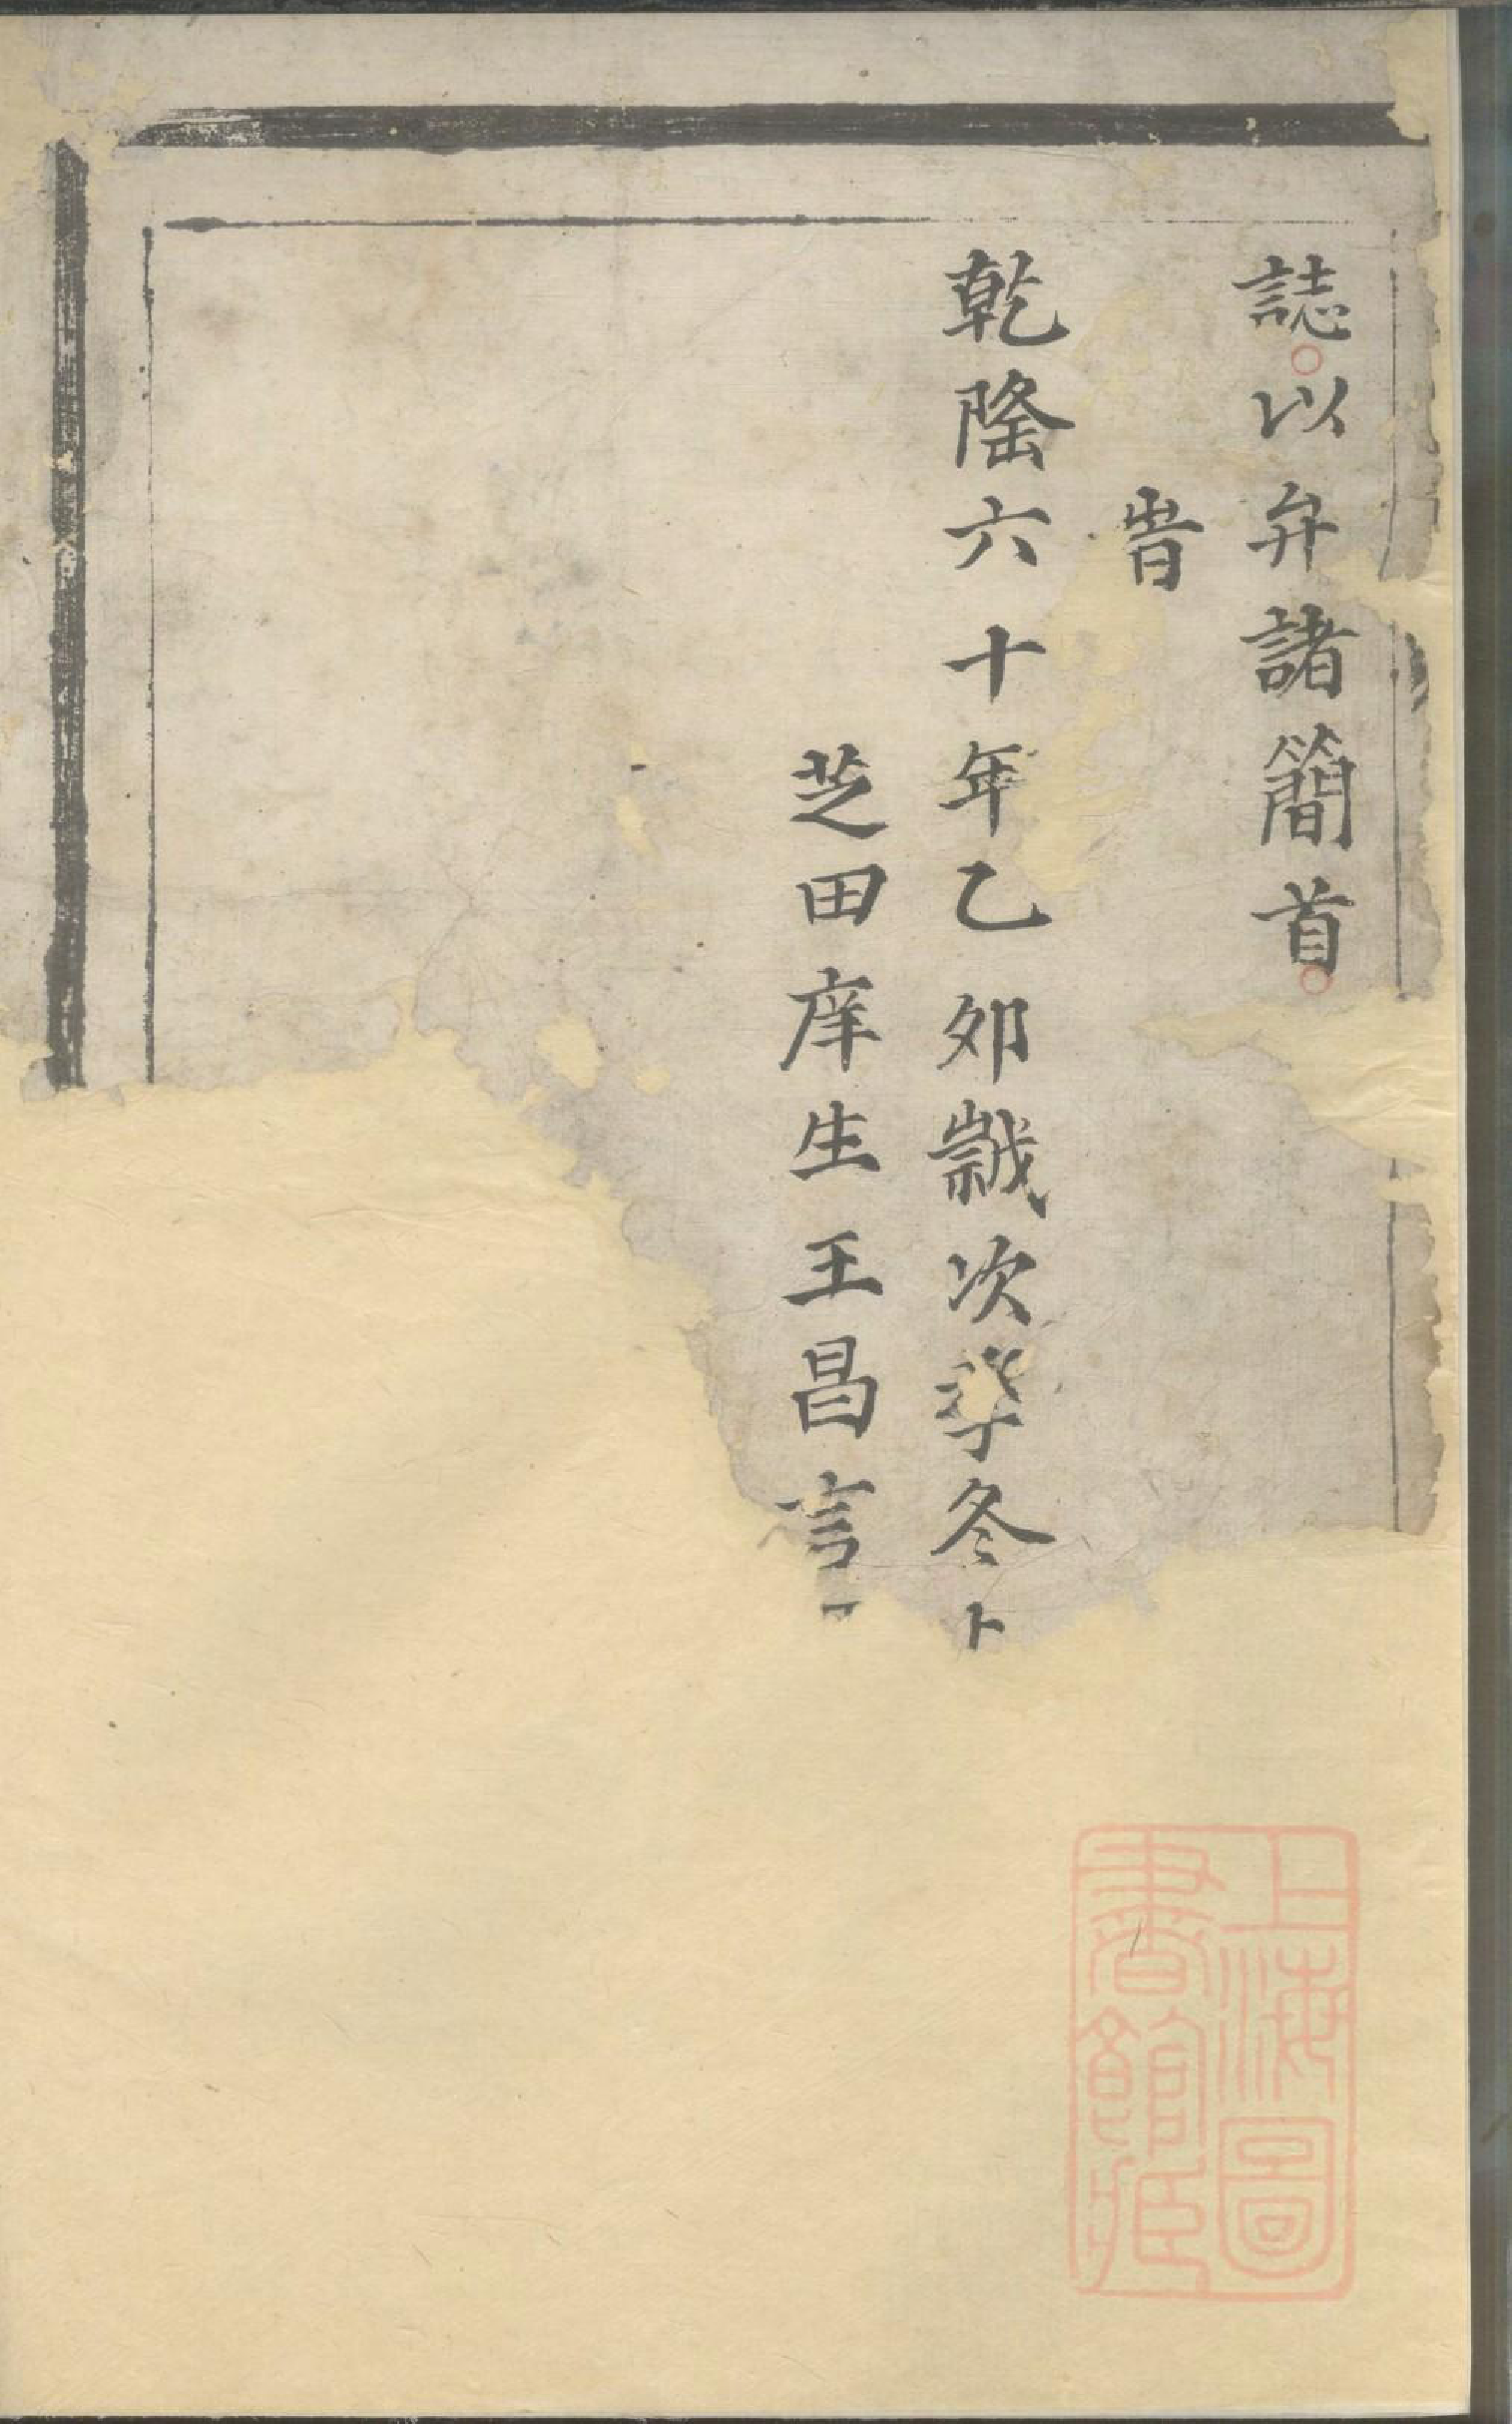 誌以弁諸簡首
旹
乾隆六十年乙夘歲次季冬
芝田庠生王昌言
上海圖
書館藏